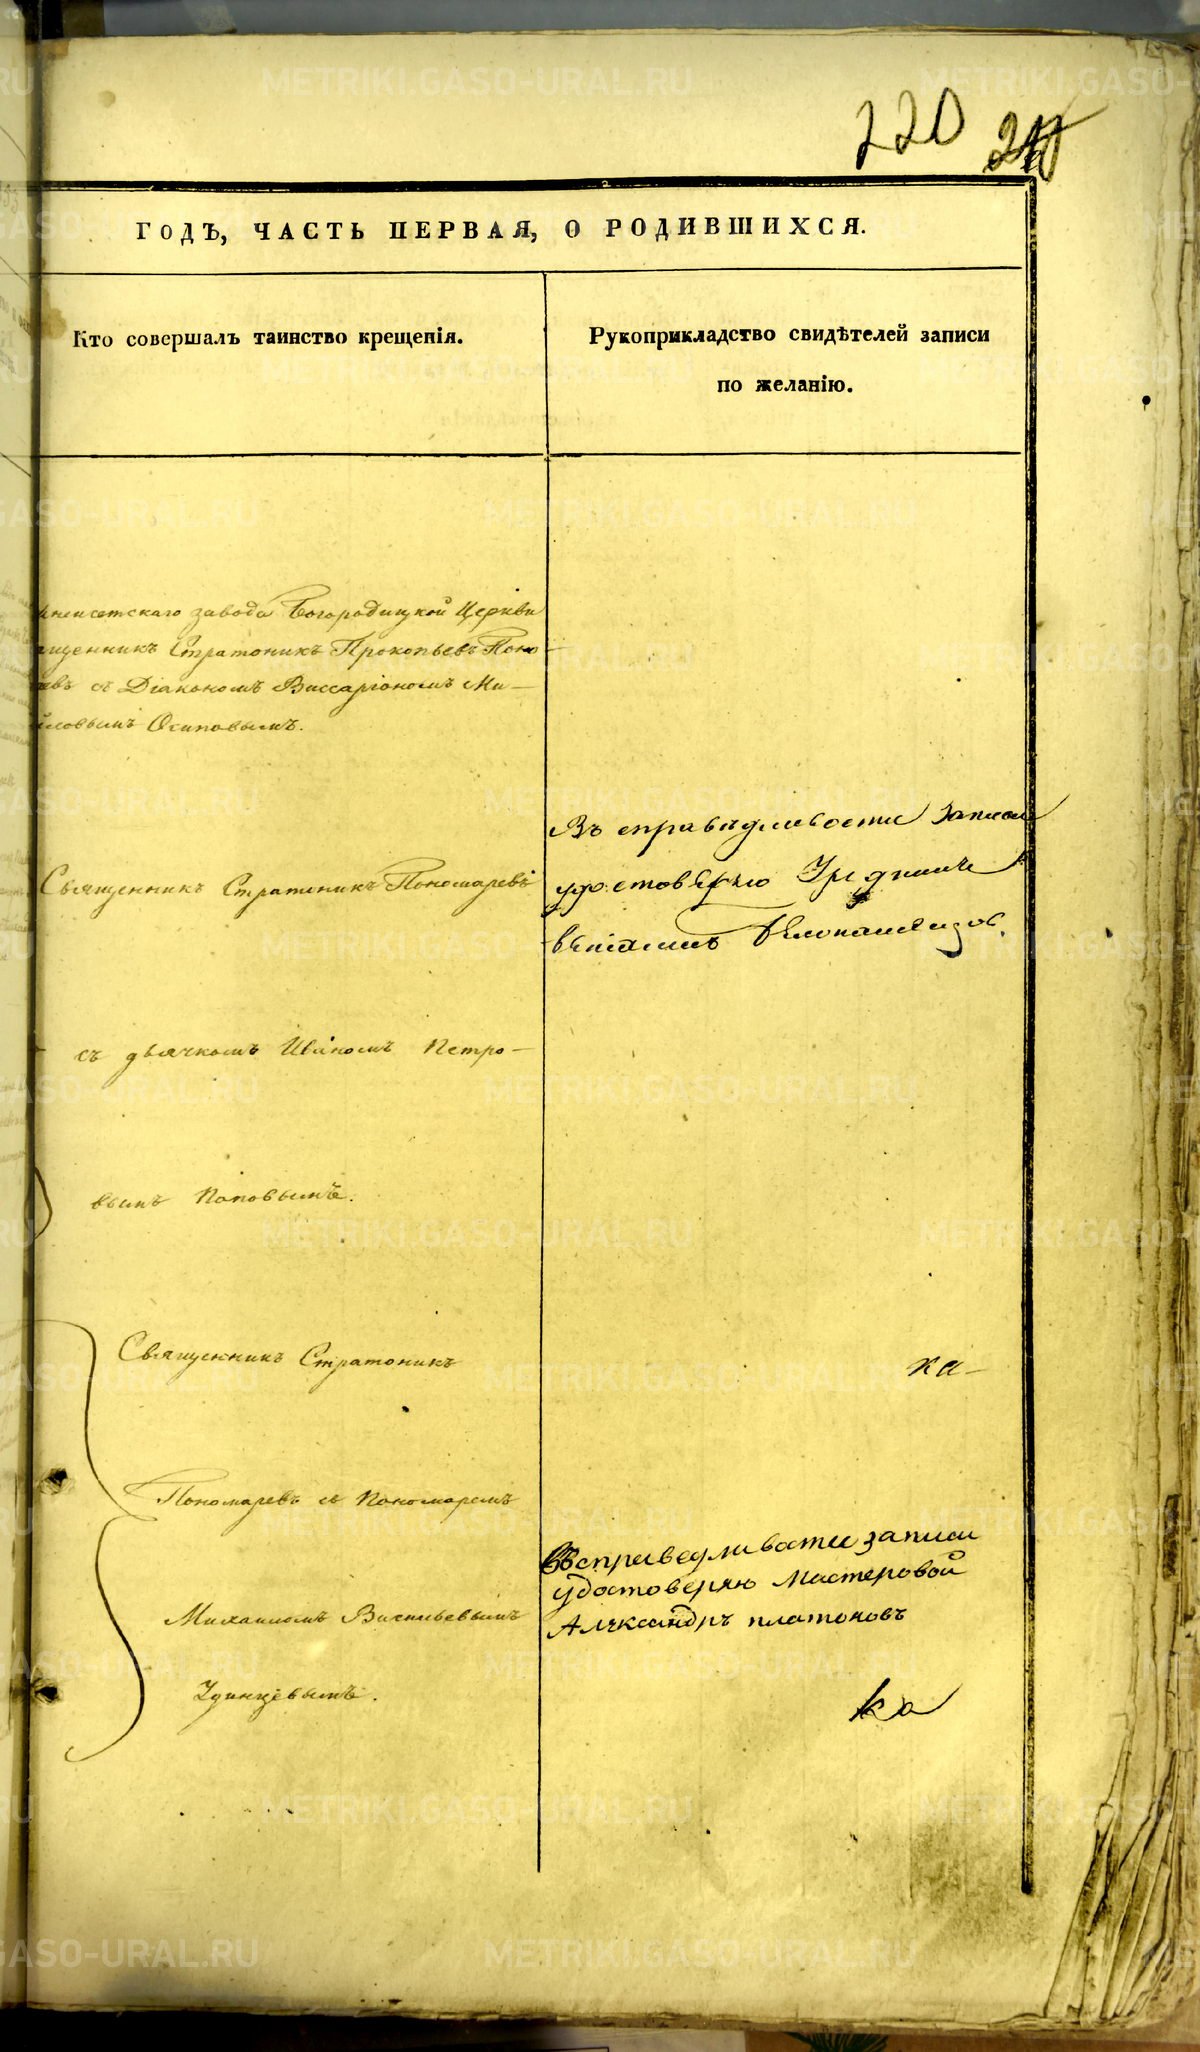 220
ГОДЪ, ЧАСТЬ ПЕРВАЯ, О РОДИВШИХСЯ.
Кто совершалъ таинство крещенія.
Рукоприкладство свидѣтелей записи
по желанію.
исетскаго завода Богородицкой Церкви
щенникъ Стратоникъ Прокопьевъ Поно-
евъ съ Діакономъ Виссаріономъ Ми-
йловымъ Осиповымъ.
Священникъ Стратоникъ Пономаревъ
съ дьячкомъ Иваномъ Петро-
вымъ Поповымъ.
Священникъ Стратоникъ
Пономаревъ съ Пономаремъ
Михаиломъ Васильевымъ
Удинцевымъ.
Въ справедливости записи
удостоверяю
ка-
Въ справедливости записи
удостоверяю мастеровой
Александръ платоновъ
ка
METRIKI.GASO-URAL.RU